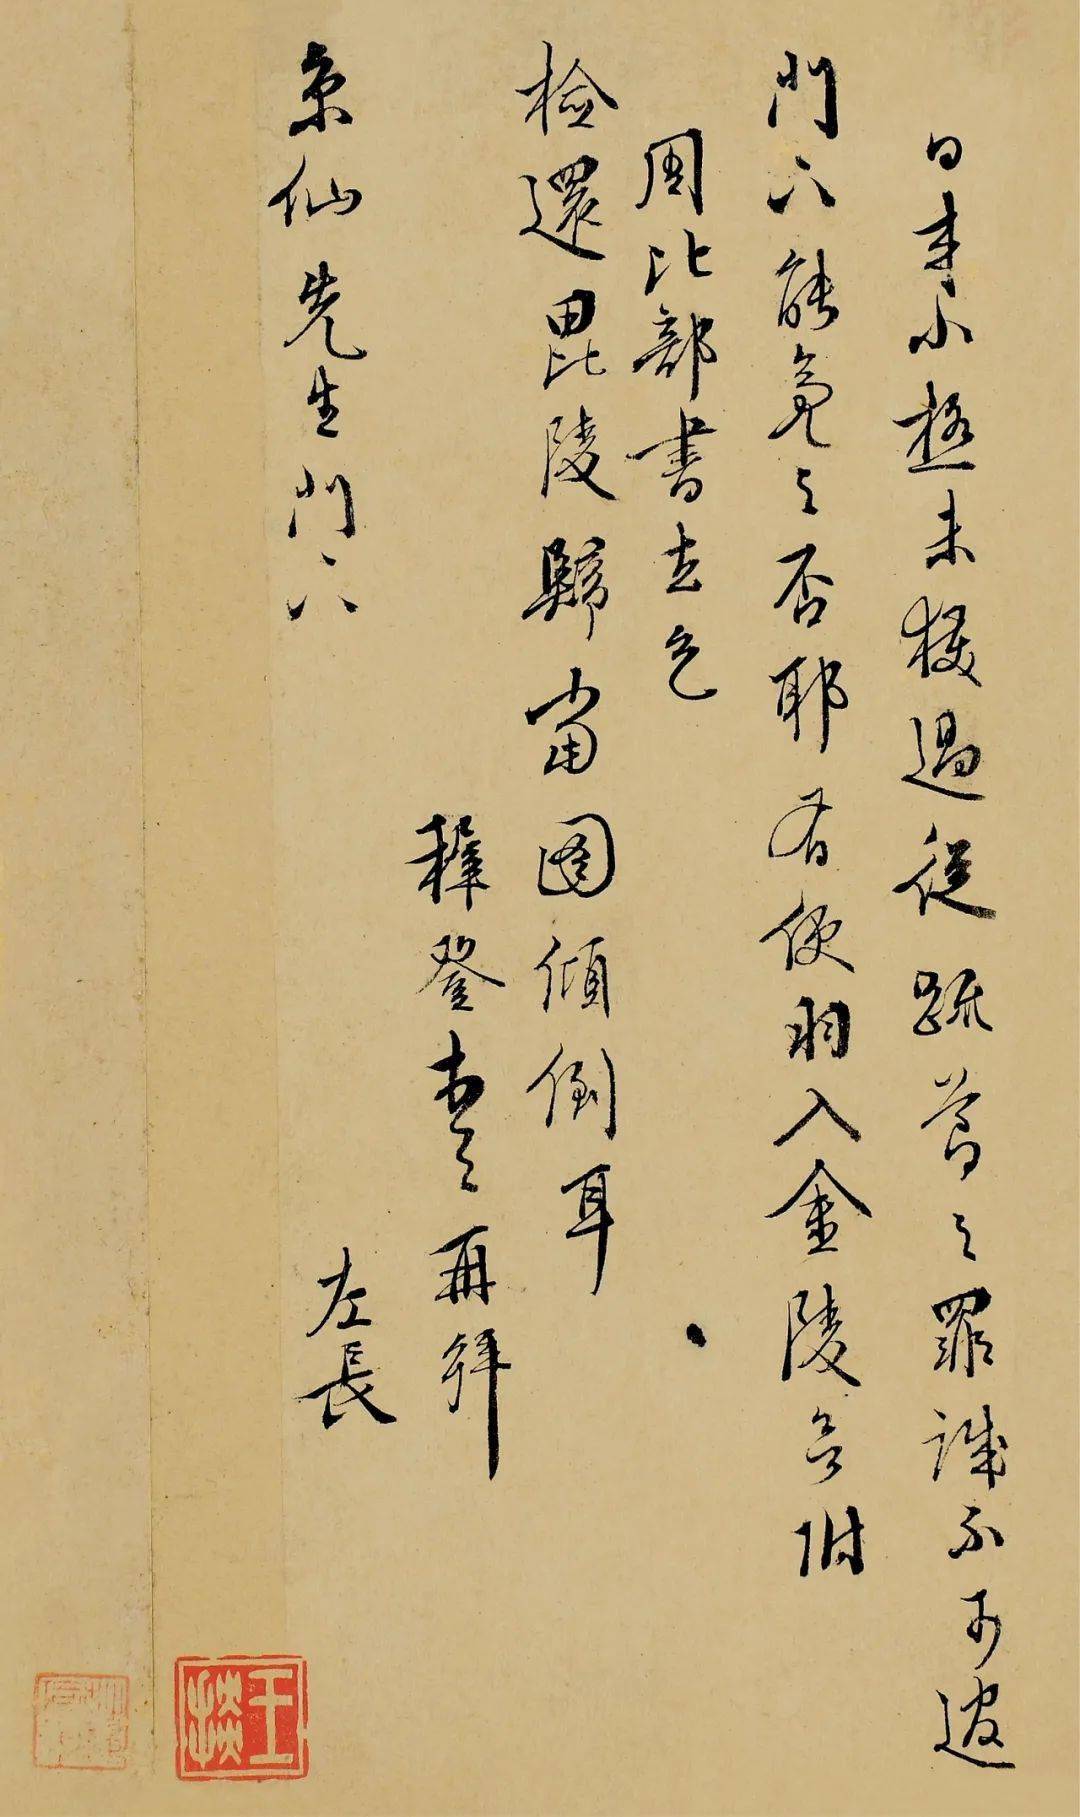 日来小極未獲過從踈簡之罪誠不可逭
門下能寬之否耶有便羽入金陵否附
周比部書去乞
檢還毘陵歸當圖傾倒耳
穉登再拜
京仙先生門下
左長
王掞